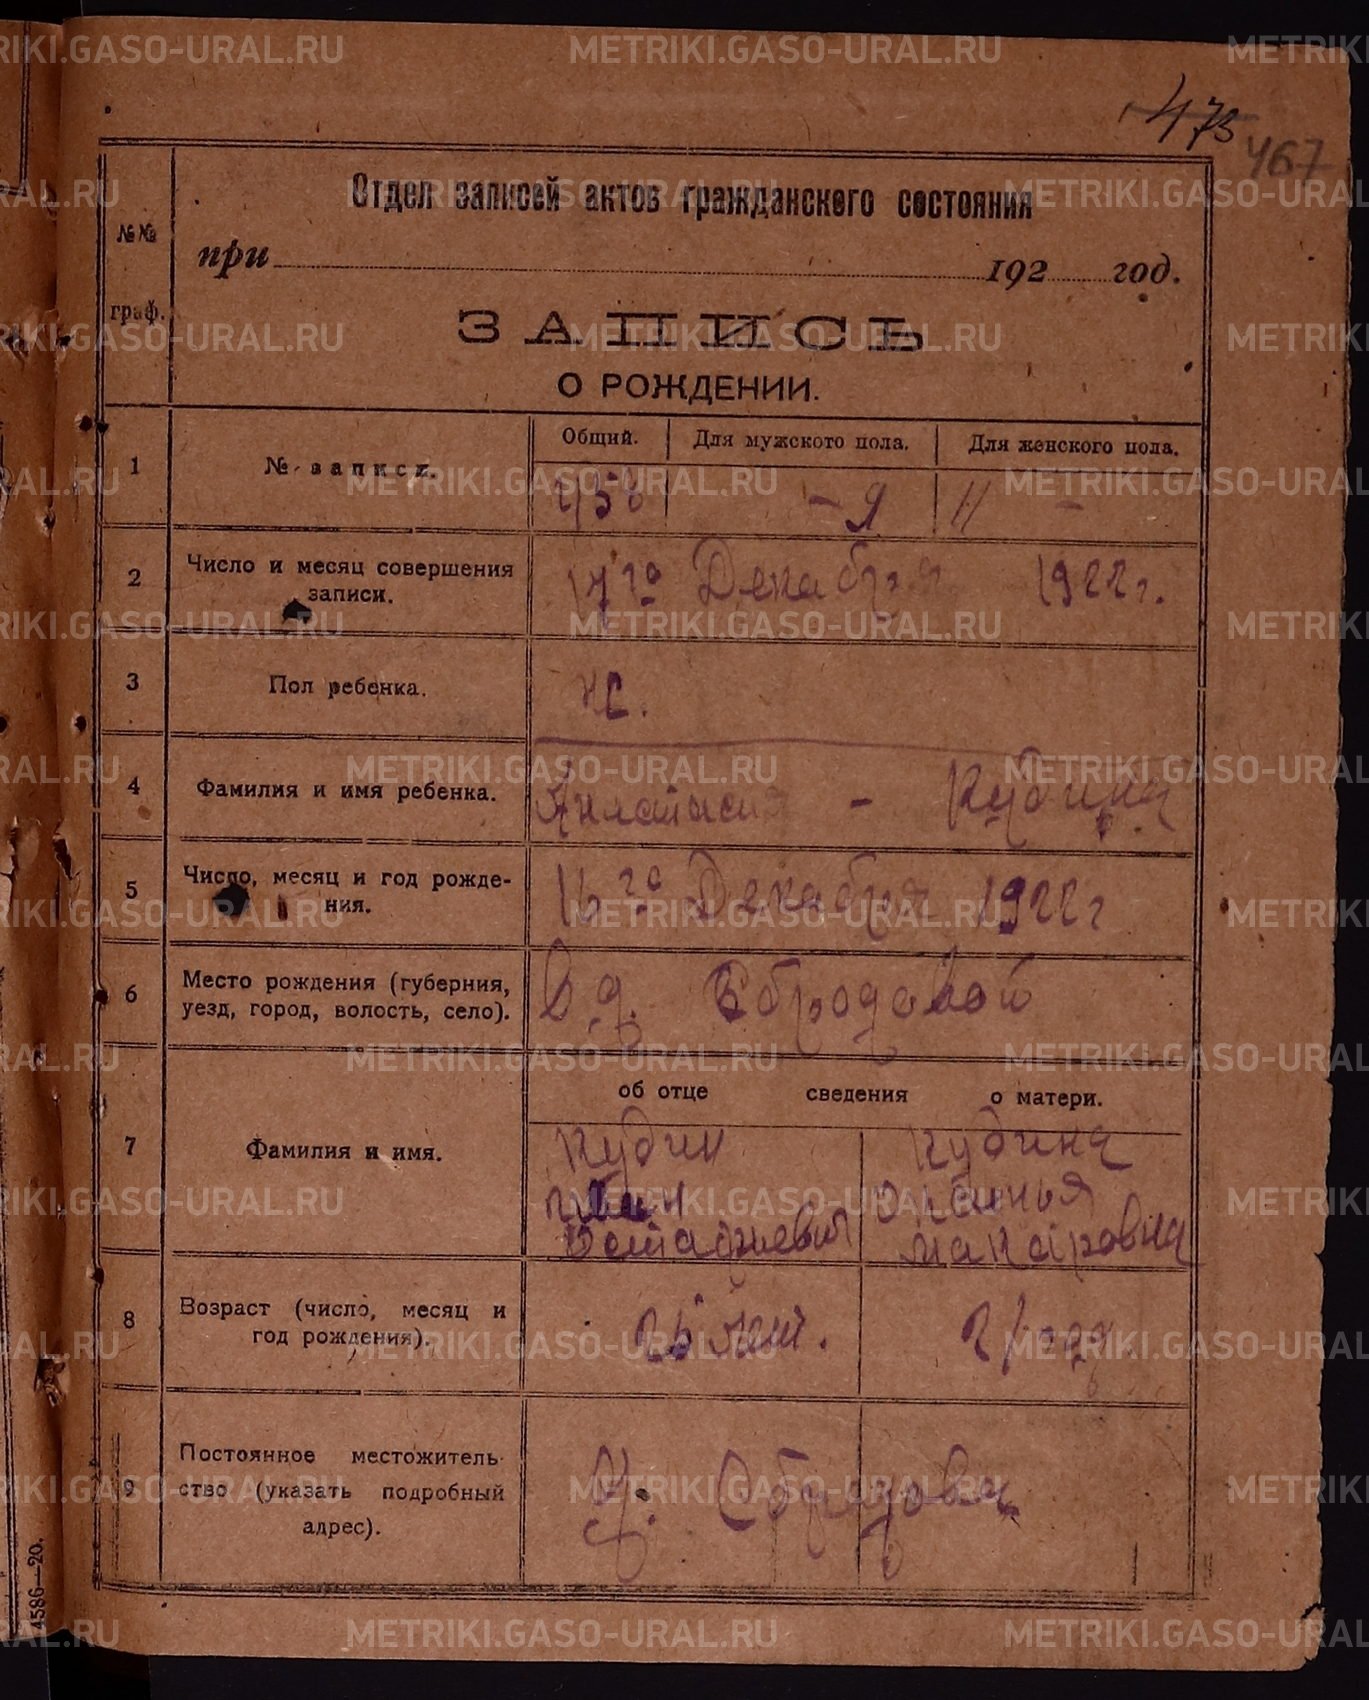 473
467
Отдел записей актов гражданского состояния
№№ граф.
при 192 год.
ЗАПИСЬ
О РОЖДЕНИИ.
1 № записи. Общий. Для мужского пола. Для женского пола.
2 Число и месяц совершения записи. 17го Декабря 1922г.
3 Пол ребенка. ж.
4 Фамилия и имя ребенка. Анастасия - Кубина
5 Число, месяц и год рождения. 16го Декабря 1922г
6 Место рождения (губерния, уезд, город, волость, село). В д.
об отце сведения о матери.
7 Фамилия и имя. Кубин Кубина
Макаровна
8 Возраст (число, месяц и год рождения). лет. 21 год
9 Постоянное местожительство (указать подробный адрес). д.
4586—20.
METRIKI.GASO-URAL.RU